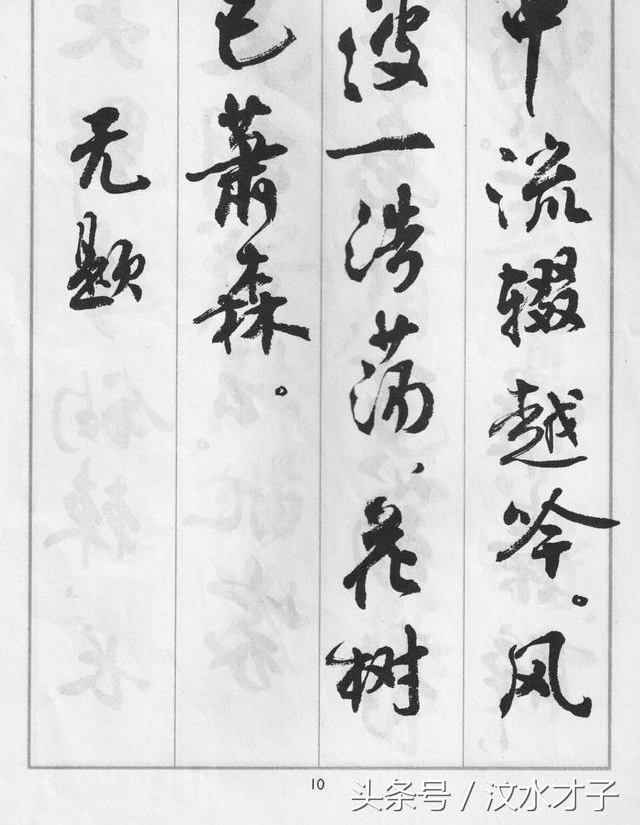 中流辍越吟。风
波一浩荡，花树
已萧森。
无题
10
头条号 / 汶水才子